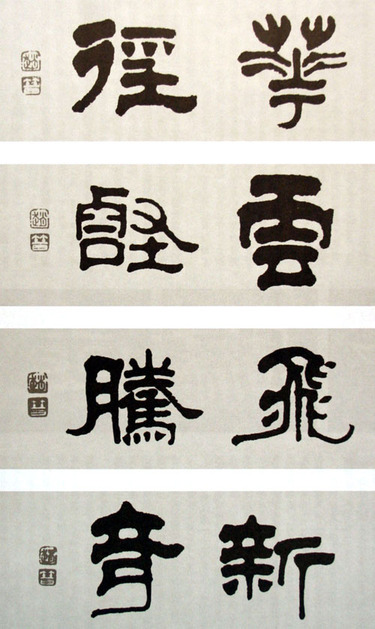 華徑
雲壑
飛騰
新奇